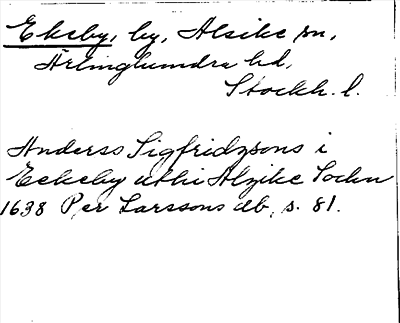 Ekeby, by, Alsike sn,
Ärlinghundra hd,
Stockh. l.
Anderss Sigfridzsons i
Eekeby uthi Alzike Sochn
1638 Per Larssons db, s. 81.